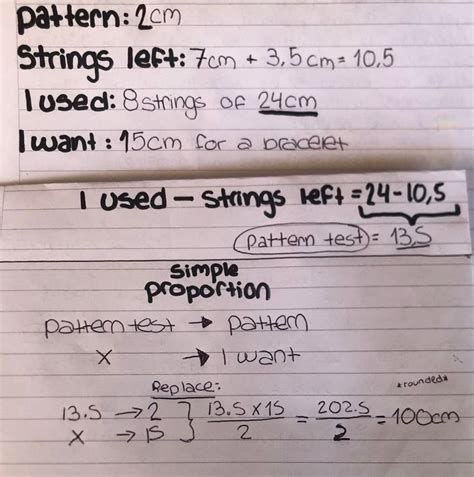 pattern: 2cm
Strings left: 7cm + 3,5cm = 10,5
I used: 8 strings of 24cm
I want: 15cm for a bracelet
I used – strings left = 24 – 10,5
pattern test = 13,5
simple
proportion
pattern test → pattern
x → I want
Replace:
*rounded*
13.5 → 2 } 13.5 x 15 = 202.5 = 100cm
x → 15 2 2